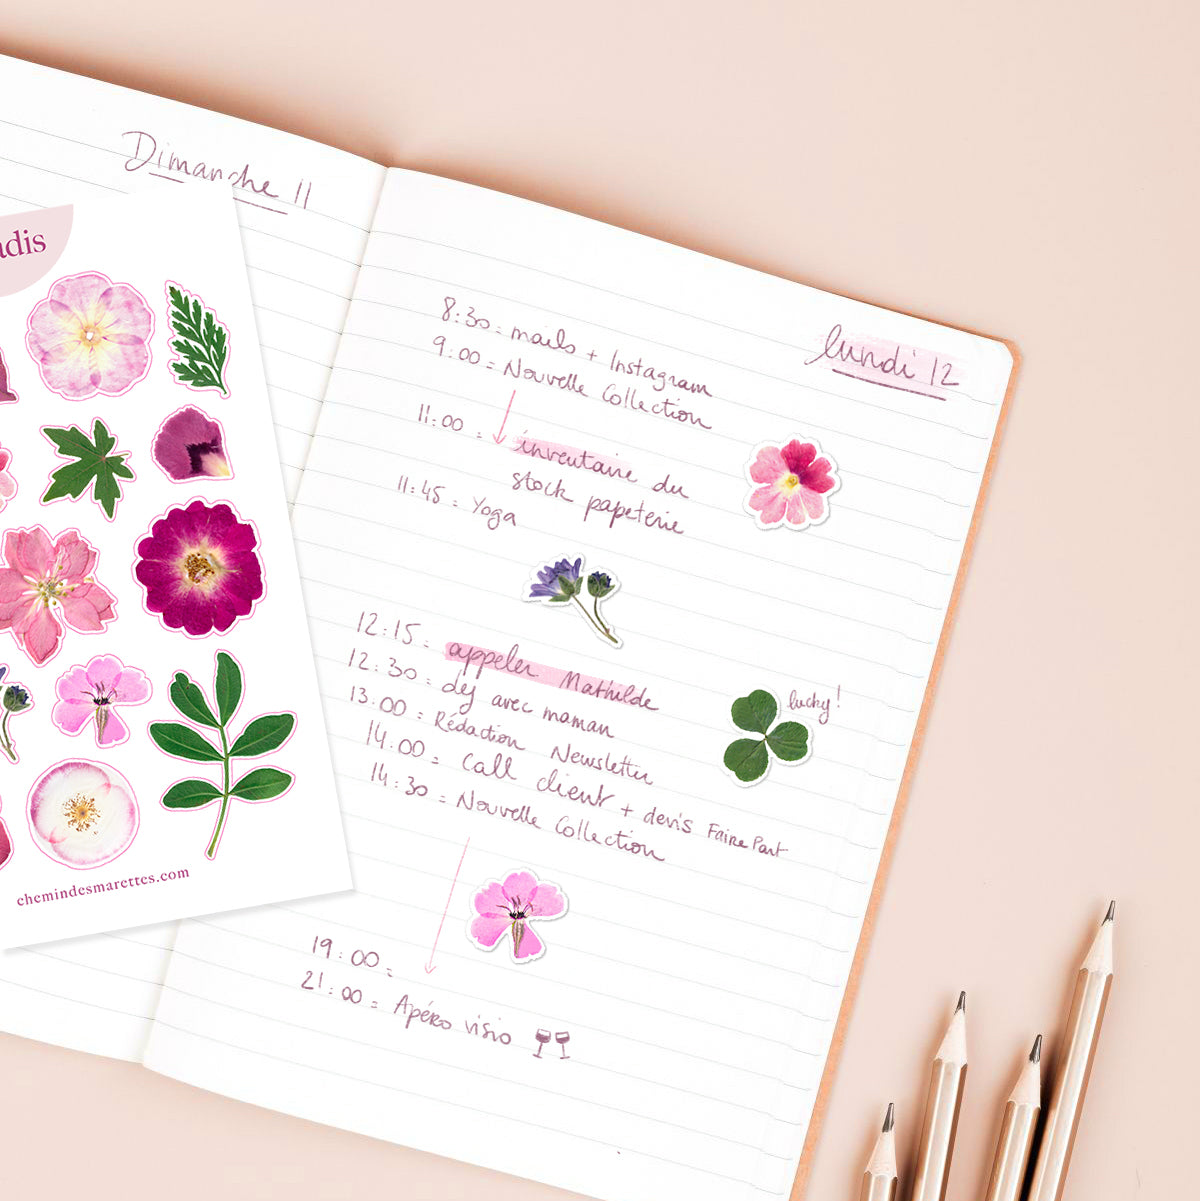 Dimanche 11
adis
chemindesmarettes.com
lundi 12
8:30 = mails + Instagram
9:00 = Nouvelle Collection
11:00 = inventaire du
stock papeterie
11:45 = Yoga
12:15 = appeler Mathilde
12:30 = dej avec maman
13:00 = Rédaction Newsletter
14:00 = Call client + devis Faire Part
14:30 = Nouvelle Collection
lucky!
19:00 =
21:00 = Apéro visio